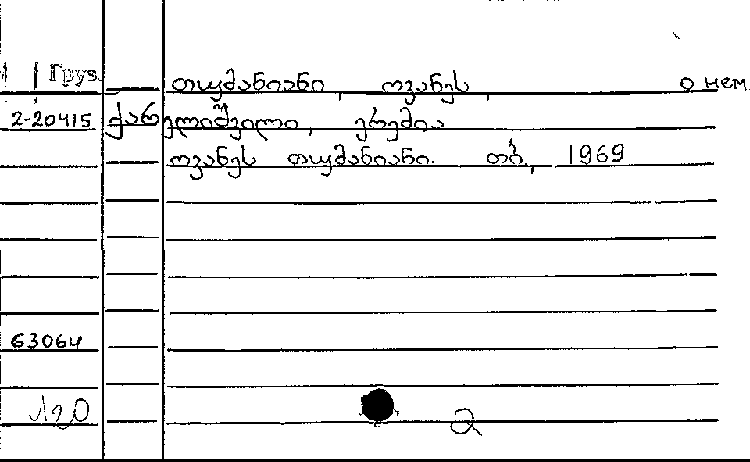 Груз. თუმანიანი, ოვანეს, о нем
2-20415 ქარელიშვილი, ერემია
ოვანეს თუმანიანი. თბ., 1969
63064
2